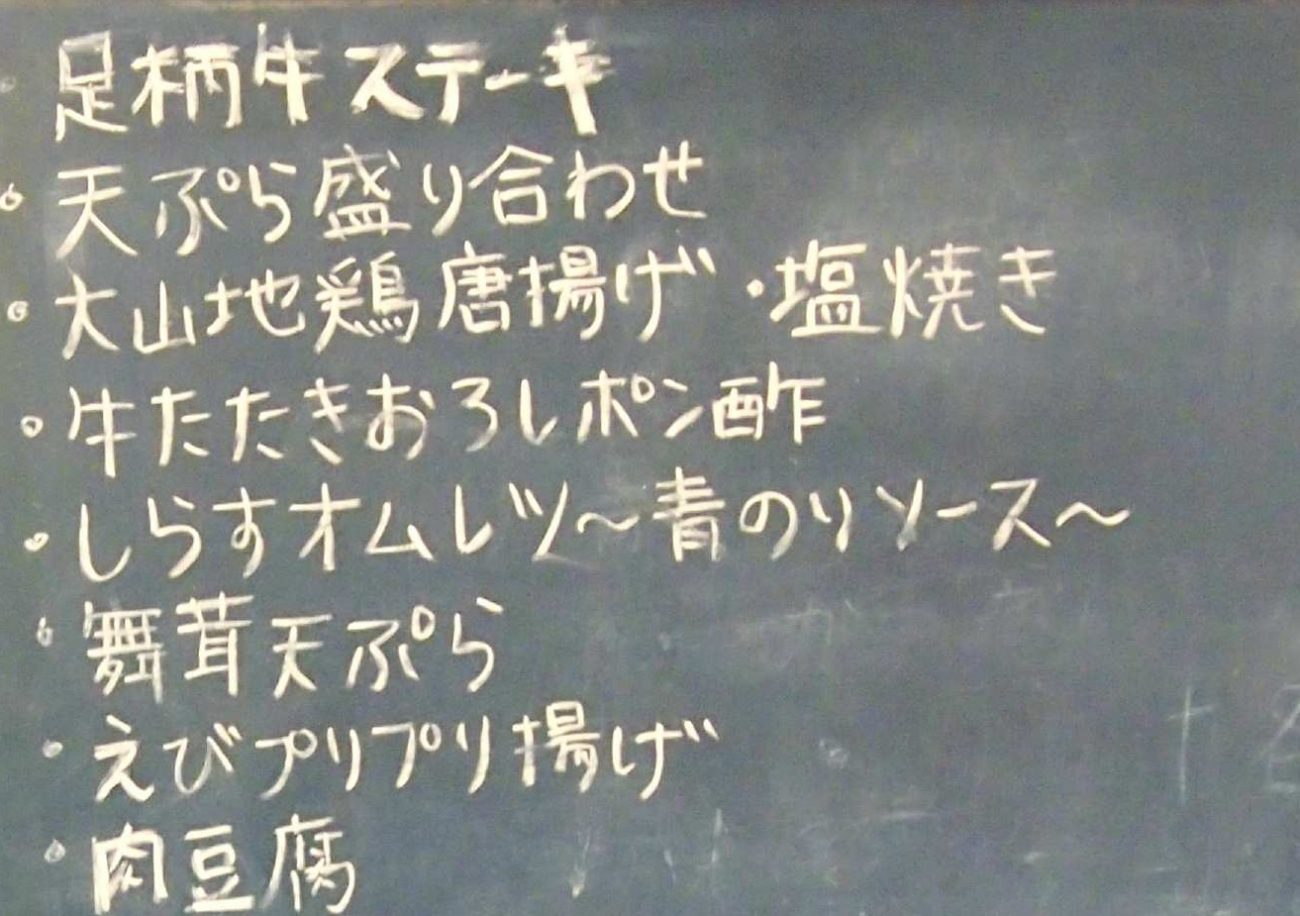 ・足柄牛ステーキ
・天ぷら盛り合わせ
・大山地鶏唐揚げ・塩焼き
・牛たたきおろしポン酢
・しらすオムレツ～青のりソース～
・舞茸天ぷら
・えびプリプリ揚げ
・肉豆腐